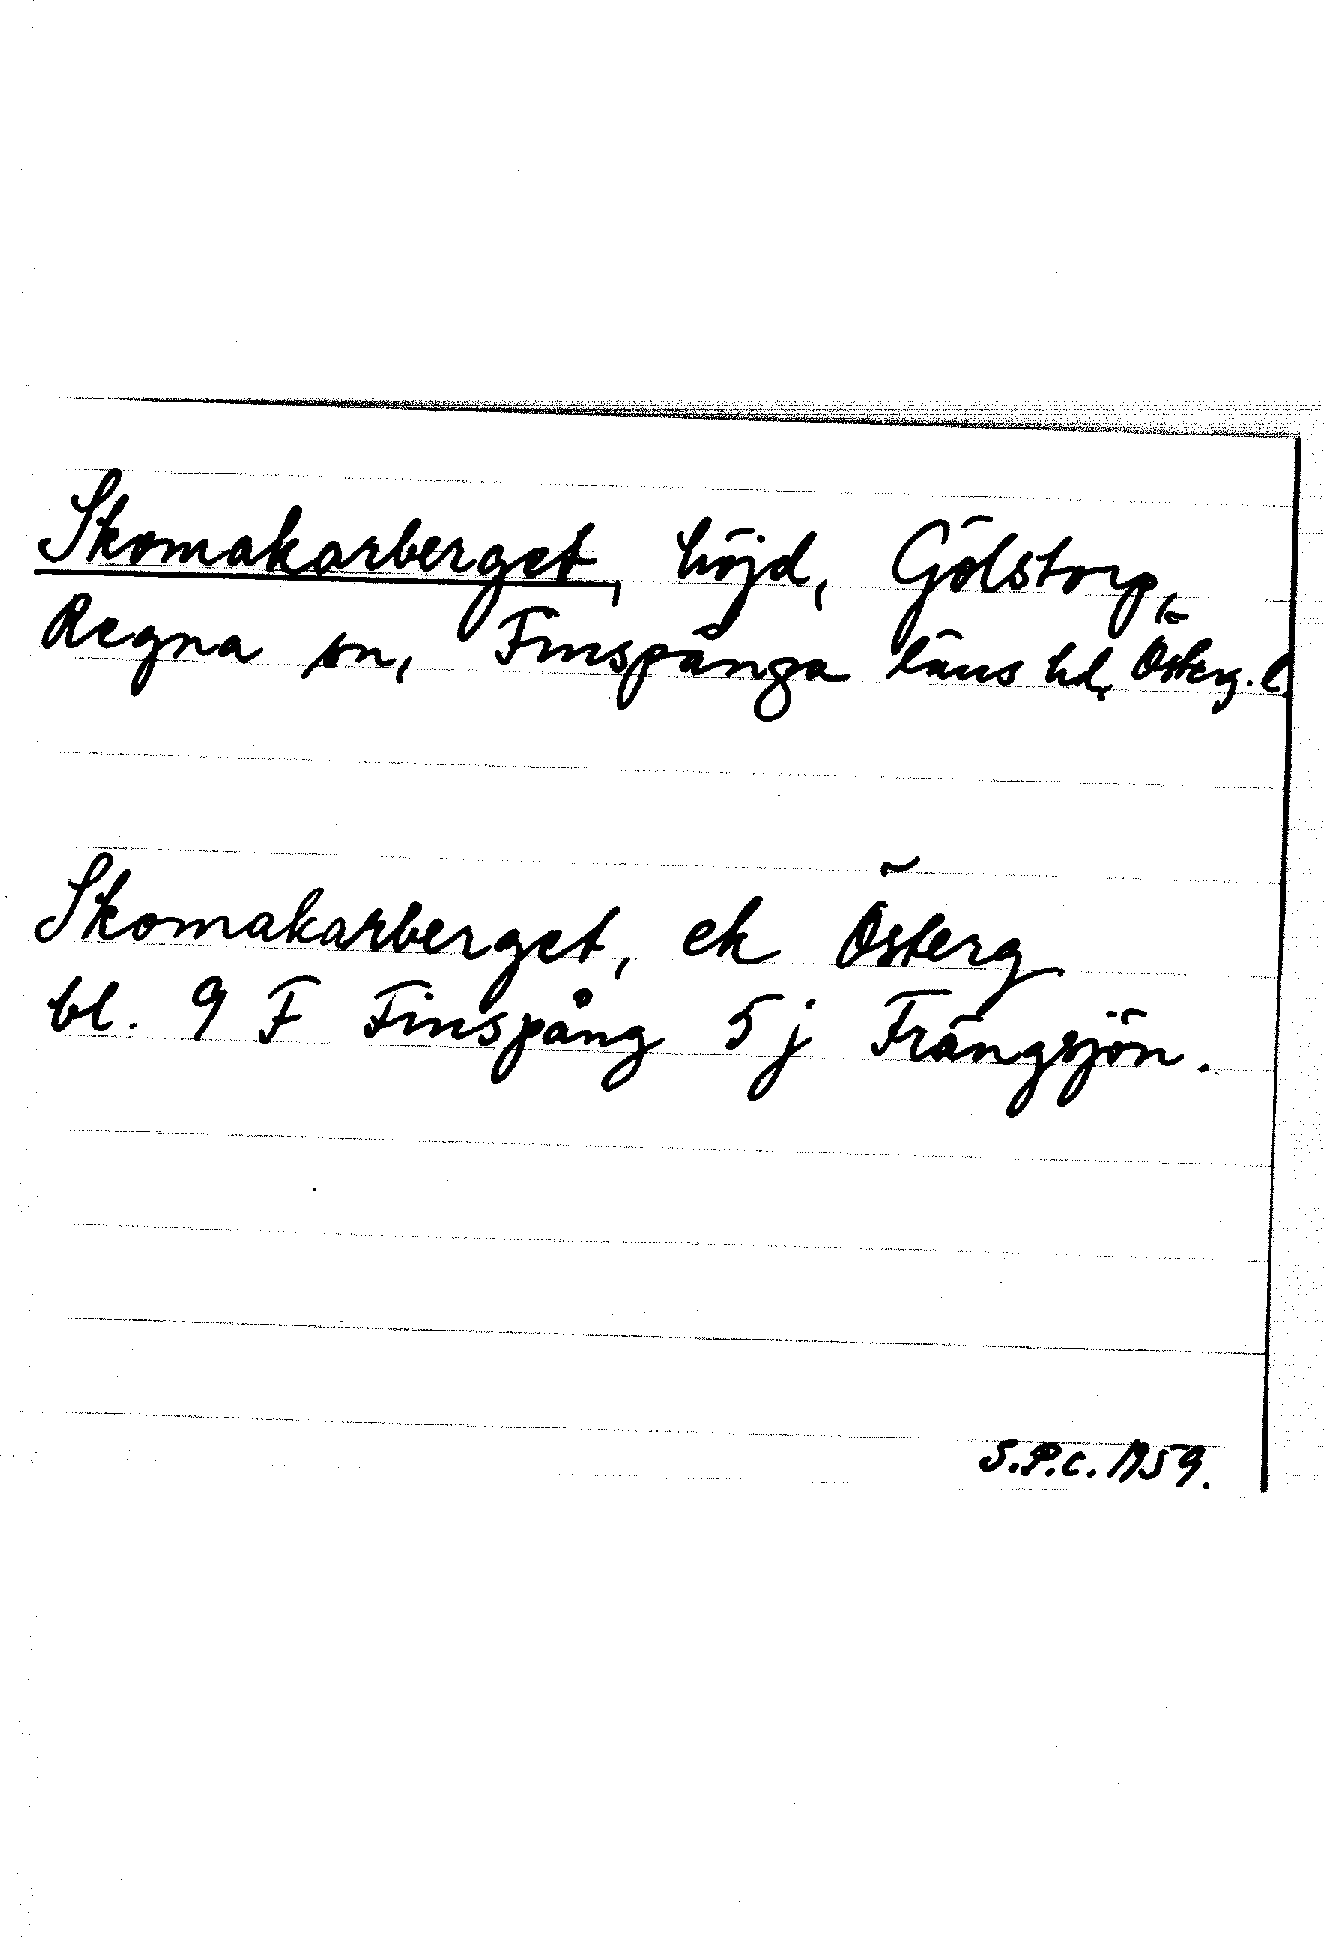 Skomakarberget, höjd, Gölstorp,
Regna sn, Finspånga läns hd, Österg. l.
Skomakarberget, ek Österg
bl. 9 F Finspång 5 j Trängsjön.
S.P.C. 1959.